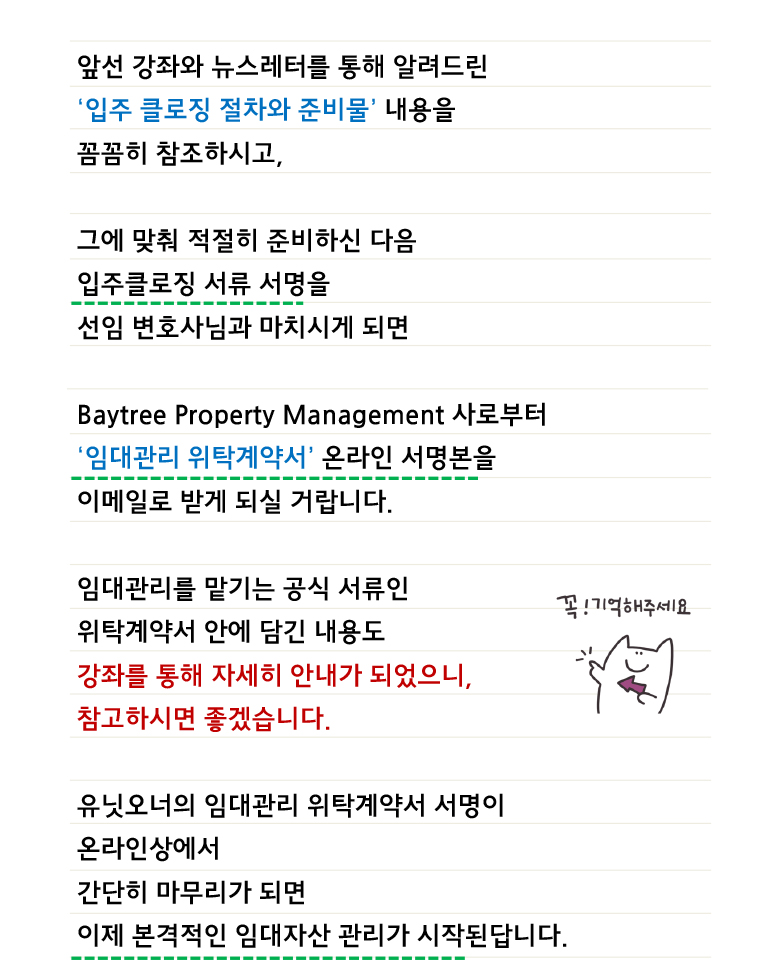 앞선 강좌와 뉴스레터를 통해 알려드린
‘입주 클로징 절차와 준비물’ 내용을
꼼꼼히 참조하시고,
그에 맞춰 적절히 준비하신 다음
입주클로징 서류 서명을
선임 변호사님과 마치시게 되면
Baytree Property Management 사로부터
‘임대관리 위탁계약서’ 온라인 서명본을
이메일로 받게 되실 거랍니다.
임대관리를 맡기는 공식 서류인
꼭!기억해주세요
위탁계약서 안에 담긴 내용도
강좌를 통해 자세히 안내가 되었으니,
참고하시면 좋겠습니다.
유닛오너의 임대관리 위탁계약서 서명이
온라인상에서
간단히 마무리가 되면
이제 본격적인 임대자산 관리가 시작된답니다.